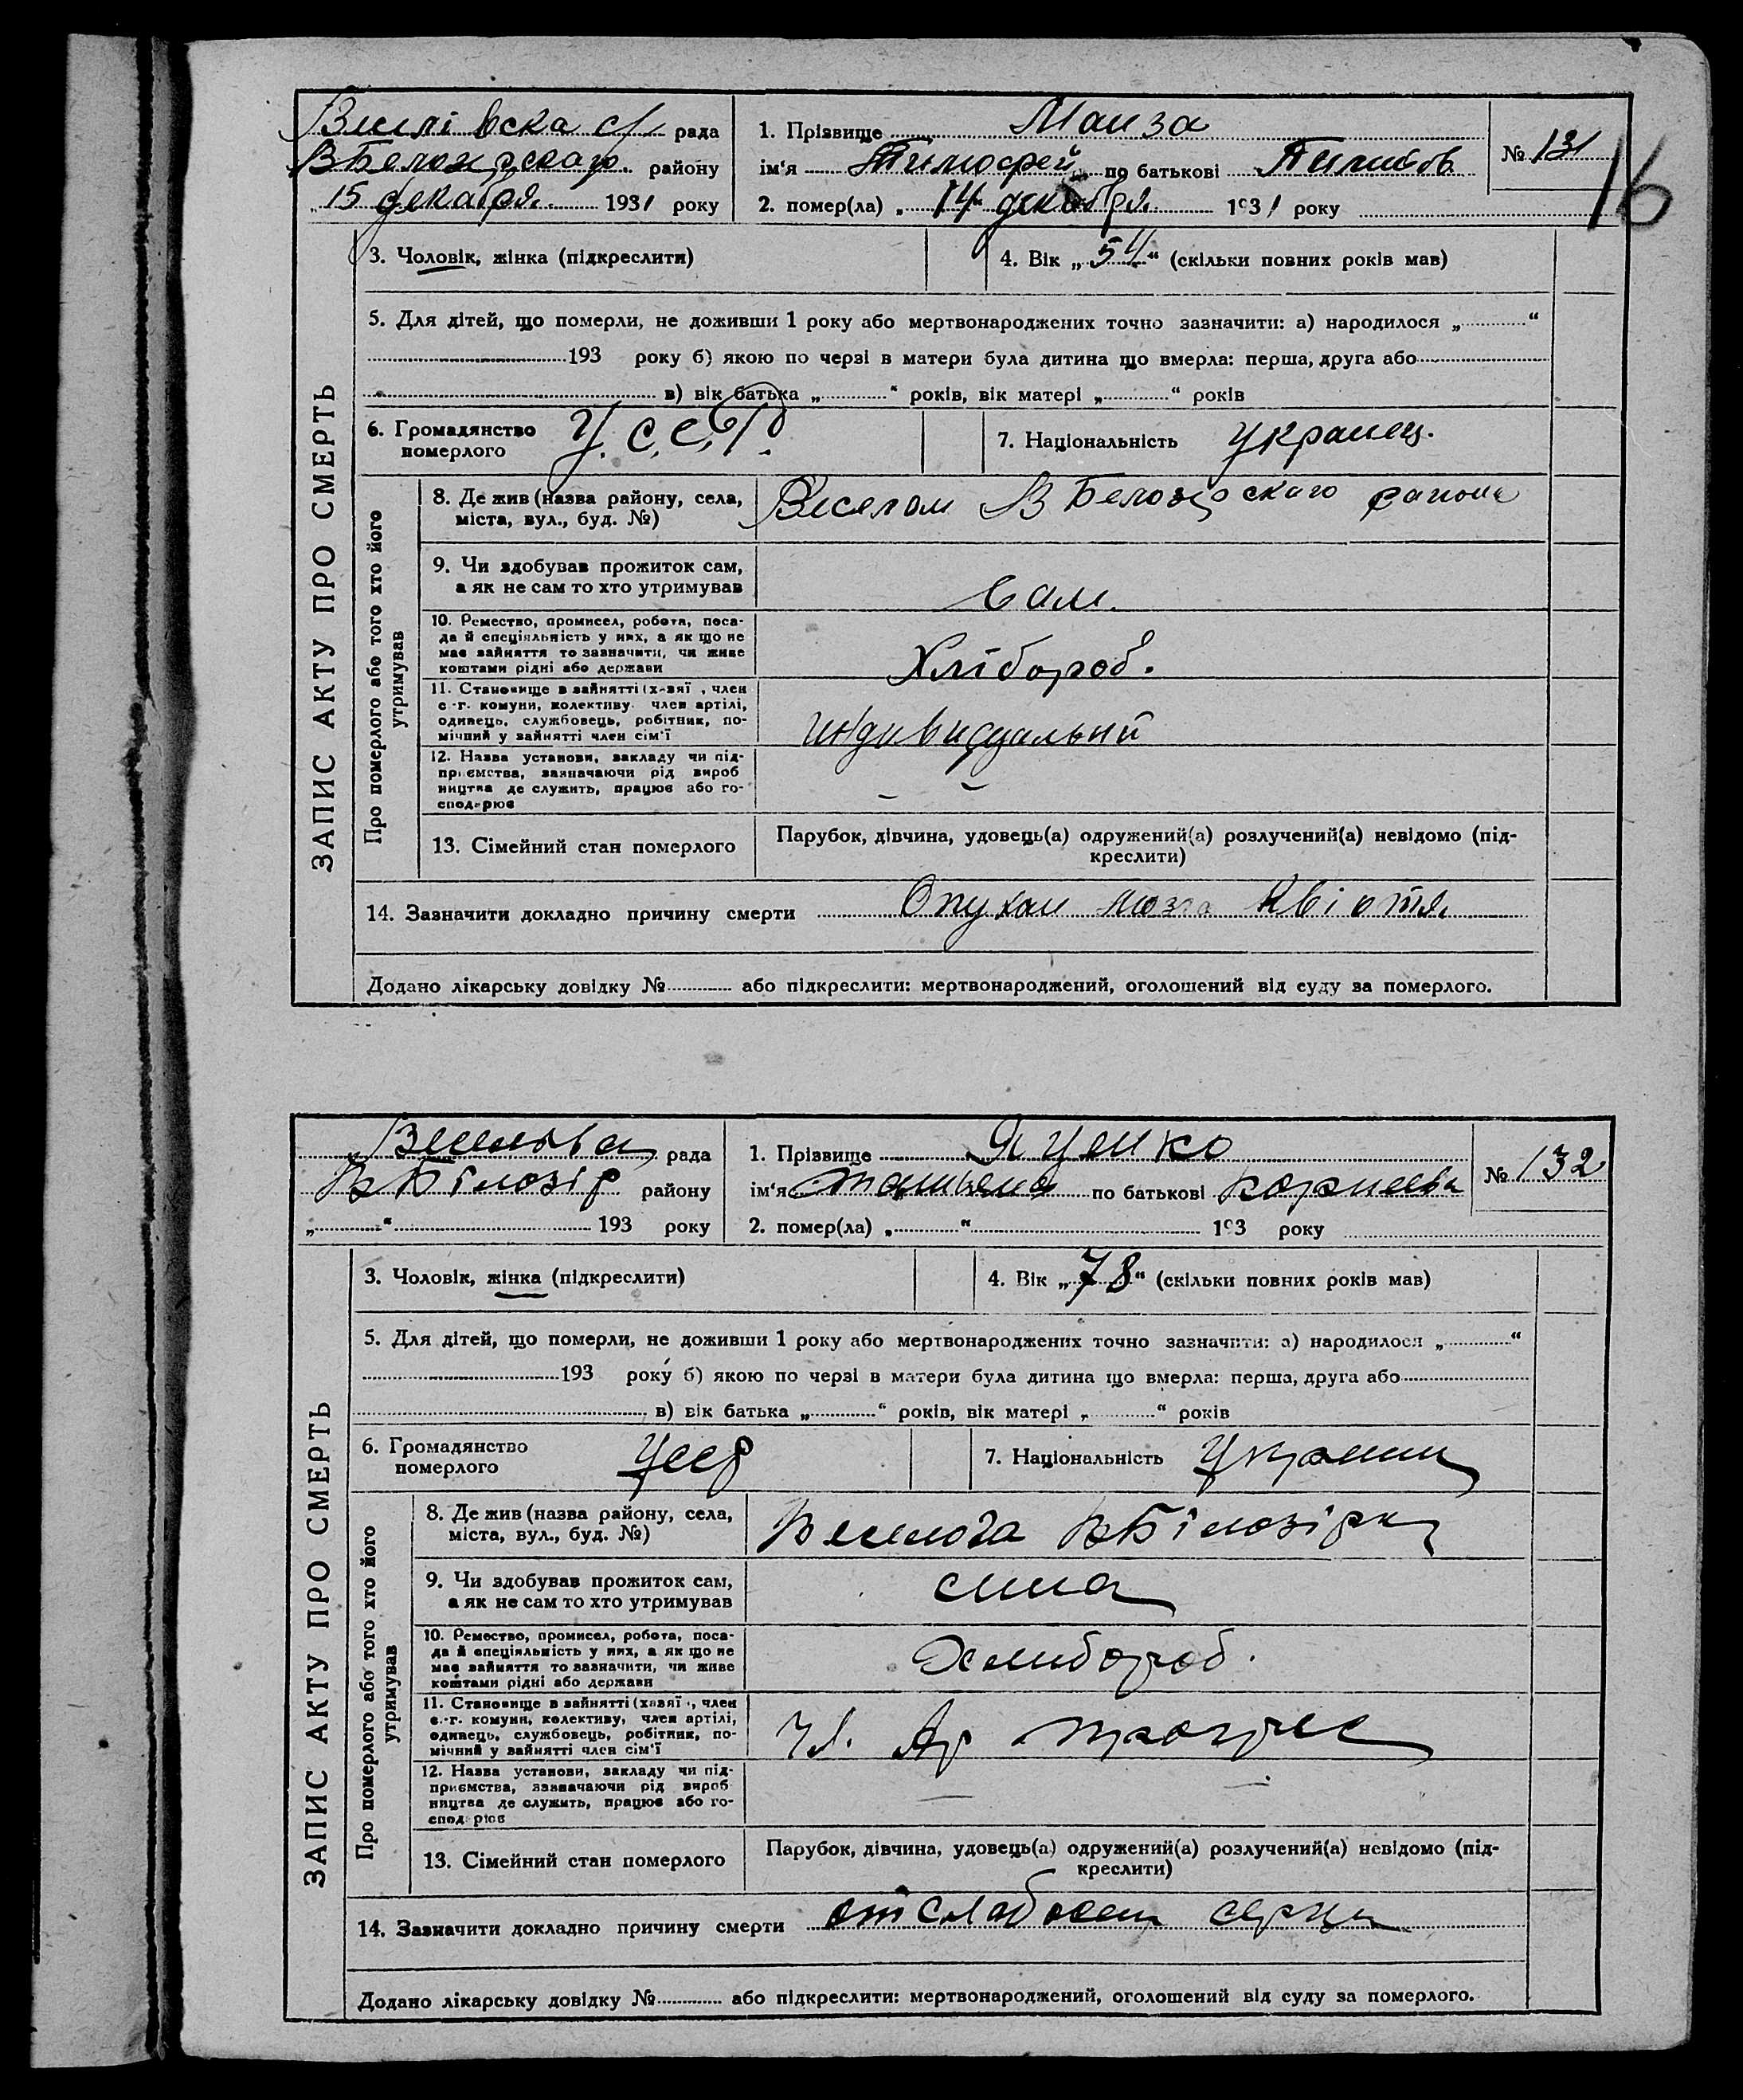 Веселівска с/ рада
В Белозерскаго району
"15 декабря 1931 року
1. Прізвище Маиза
ім'я Тимофей по батькові
2. помер(ла) „14 декабря 1931 року
№ 131
16
3. Чоловік, жінка (підкреслити)
4. Вік „54" (скільки повних років мав)
5. Для дітей, що померли, не доживши 1 року або мертвонароджених точно зазначити: а) народилося „ “
193 року б) якою по черзі в матери була дитина що вмерла: перша, друга або
в) вік батька „ “ років, вік матері „ “ років
6. Громадянство
померлого
У.С.С.Р.
7. Національність Украиец.
ЗАПИС АКТУ ПРО СМЕРТЬ
Про померлого або того хто його
утримував
8. Де жив (назва району, села,
міста, вул., буд. №)
Веселом В Белозерскаго района
9. Чи здобував прожиток сам,
а як не сам то хто утримував
Сам.
10. Ремество, промисел, робота, поса-
да й спеціяльність у них, а як що не
має зайняття то зазначити, чи живе
коштами рідні або держави
Хлібороб.
11. Становище в зайнятті (х-вяї , член
с.-г. комуни, колективу член артілі,
одинець, службовець, робітник, по-
мічний у зайнятті член сім'ї
индивидуальный
12. Назва установи, закладу чи під-
приємства, зазначаючи рід вироб
ництва де служить, працює або го-
сподарює
13. Сімейний стан померлого
Парубок, дівчина, удовець(а) одружений(а) розлучений(а) невідомо (під-
креслити)
14. Зазначити докладно причину смерти Опухал мозга
Додано лікарську довідку № або підкреслити: мертвонароджений, оголошений від суду за померлого.
рада
В Білозір району
„ “ 193 року
1. Прізвище Яценко
ім'я Татьяна по батькові Корнеевна
2. помер(ла) „ “ 193 року
№ 132
3. Чоловік, жінка (підкреслити)
4. Вік „78“ (скільки повних років мав)
5. Для дітей, що померли, не доживши 1 року або мертвонароджених точно зазначити: а) народилося „ “
193 року б) якою по черзі в матери була дитина що вмерла: перша, друга або
в) вік батька „ “ років, вік матері „ “ років
6. Громадянство
померлого
Усср
7. Національність
ЗАПИС АКТУ ПРО СМЕРТЬ
Про померлого або того хто його
утримував
8. Де жив (назва району, села,
міста, вул., буд. №)
Веселога В Білозірки
9. Чи здобував прожиток сам,
а як не сам то хто утримував
10. Ремество, промисел, робота, поса-
да й спеціяльність у них, а як що не
має зайняття то зазначити, чи живе
коштами рідні або держави
Хлибороб.
11. Становище в зайнятті (хавяї , член
с.-г. комуни, колективу, член артілі,
одинець, службовець, робітник, по-
мічний у зайнятті член сім'ї
Чл. Ар
12. Назва установи, закладу чи під-
приємства, зазначаючи рід вироб
ництва де служить, працює або го-
сподарює
13. Сімейний стан померлого
Парубок, дівчина, удовець(а) одружений(а) розлучений(а) невідомо (під-
креслити)
14. Зазначити докладно причину смерти от слабости серца
Додано лікарську довідку № або підкреслити: мертвонароджений, оголошений від суду за померлого.